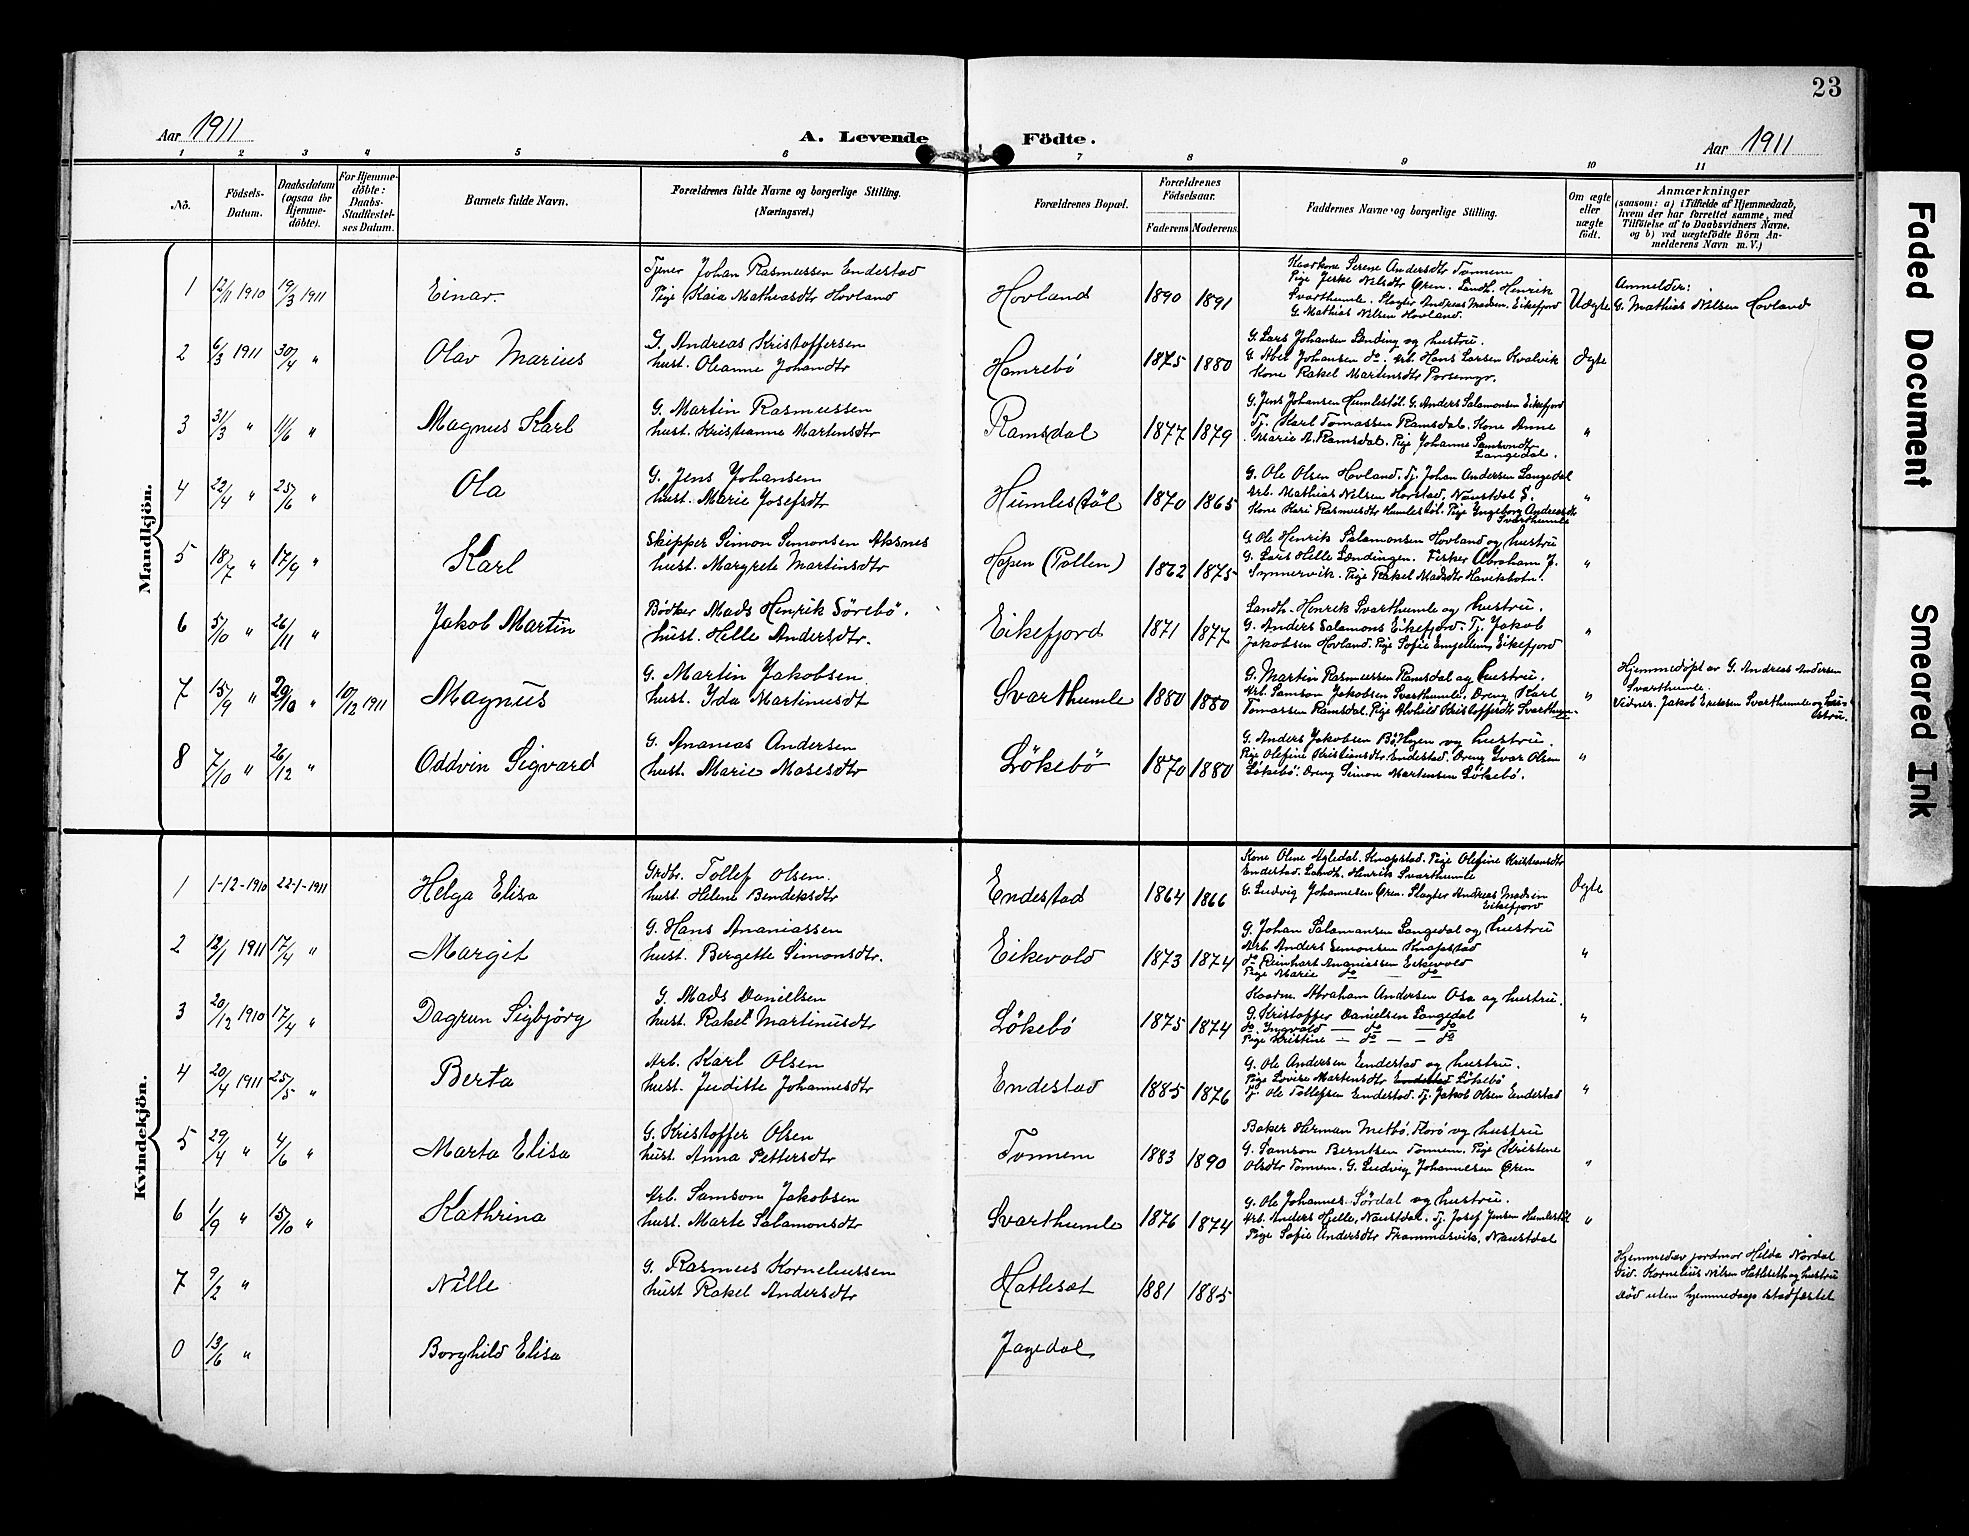 23
Aar 1911
A. Levende Födte.
Aar 1911
1 2 3 4 5 6 7 8 9 10 11
No.
Födsels-Datum.
Daabsdatum (ogsaa for Hjemmedöbte).
For Hjemmedöbte: Daabs-Stadfæstelses Datum.
Barnets fulde Navn.
Forældrenes fulde Navne og borgerlige Stilling. (Næringsvei.)
Forældrenes Bopæl.
Forældrenes Födselsaar.
Faderens Moderens
Faddernes Navne og borgerlige Stilling.
Om ægte eller uægte födt.
Anmærkninger
(saasom: a) i Tilfælde af Hjemmedaab, hvem der har forrettet samme, med Tilföielse af to Daabsvidners Navne. og b) ved uægtefödte Börn Anmelderens Navn m. V.)
Mandkjön.
1 12/11 1910 19/3 1911 Einar.
Tjener Johan Rasmussen Endestad
Pige Kaia Mathiasdtr Hovland
Hovland 1890 1891
Pige Jerke Nilsdtr Øren. Landh. Henrik
Svarthumle. Slagter Andreas Madsen. Eikefjord
G. Mathias Nilsen Hovland.
Uægte
Anmelder:
G. Mathias Nilsen Hovland
2 6/3 1911 30/4 " Olav Marius
G. Andreas Kristoffersen
hust. Oleanne Johandtr
Hamrebö 1875 1880
G. Lars Johansen Lending og hustru.
G. Abel Johansen do. Arb. Hans Larsen Kvalvik
Kone Rakel Martensdtr Porsemyr.
Ægte
3 31/3 " 11/6 " Magnus Karl
G. Martin Rasmussen
hust. Kristianne Martensdtr
Ramsdal 1877 1879
G. Jens Johansen Humlestöl. G. Anders Salamonsen Eikefjord
Tj. Karl Tomassen Ramsdal. Kone Anne
Marie A. Ramsdal. Pige Johanne Samsondtr
Langedal.
"
4 22/4 " 25/6 " Ola
G. Jens Johansen
hust. Marie Josefsdtr
Humlestöl 1870 1865
G. Ole Olsen Hovland. Tj. Johan Andersen Langedal
Arb. Mathias Nilsen Horstad, Naustdal S.
Kone Kari Rasmusdtr Humlestöl. Pige Ingeborg Andreasdtr
Svarthumle
"
5 18/7 " 17/9 " Karl
Skipper Simon Simonsen Aksnes
hust. Margrete Martinsdtr
Hopen (Pollen) 1862 1875
G. Ole Henrik Salamonsen Hovland og hustru
G. Lars Helle Lendingen. Fisker Abraham J.
Synnervik. Pige Rakel Madsdtr Haukebotn.
"
6 5/10 " 26/11 " Jakob Martin
Bödker Mads Henrik Sörebö.
hust. Helle Andersdtr.
Eikefjord 1871 1877
Landh. Henrik Svarthumle og hustru.
G. Anders Salamons Eikefjord. Tj. Jakob
Jakobsen Hovland. Pige Sofie Engellung Eikefjord
"
7 15/9 " 29/10 " 10/12 1911 Magnus
G. Martin Jakobsen
hust. Yda Martinusdt
Svarthumle 1880 1880
G. Martin Rasmussen Ramsdal og hustru.
Arb. Samson Jakobsen Svarthumle. Dreng Karl
Tomassen Ramsdal. Pige Alvhild Kristofferdtr Svarthumle
"
Hjemmedöpt av G. Andreas Andersen
Svarthumle.
Vidner. Jakob Eriksen Svarthumle og
8 7/10 " 26/12 " Oddvin Sigvard
G. Ananias Andersen
hust. Marie Mosesdtr
Lökebö 1870 1880
G. Anders Jakobsen og hustru.
Pige Olefine Kristiensdtr Endestad. Dreng Yvar Olsen
Lökebö. Dreng Simon Martensen Lökebö.
"
Kvindekjön.
1 1-12-1910 22-1-1911 Helga Elisa
Grdbr. Tollef Olsen.
hust. Helene Bendiksdtr
Endestad 1864 1866
Kone Oline Myledal. Knapstad. Pige Olefine Kristiansdtr
Endestad. Landh. Henrik Svarthumle
G. Ludvig Johannesen Øren. Slagter Andreas Madsen
Eikefjord
Ægte
2 12/1 1911 17/4 " Margit
G. Hans Ananiassen
hust. Bergette Simonsdtr.
Eikevold 1873 1874
G. Johan Salamonsen Langedal og hustru
Arb. Anders Simonsen Knapstad
do Reinhart Ananiassen Eikevold
Pige Marie do — do
"
3 20/12 1910 17/4 " Dagrun Sigbjörg
G. Mads Danielsen
hust. Rakel Martinusdtr
Lökebö 1875 1874
Abraham Andersen Osa og hustru.
G. Kristoffer Danielsen Langedal
do. Ingvald — do — do
Pige Kristine — do — — do
"
4 20/4 1911 25/5 " Berta
Arb. Karl Olsen
hust. Juditte Johannesdtr
Endestad 1885 1876
G. Ole Andersen Endestad og hustru.
Pige Lovise Martensdtr Endestad Lökebö
Tj. Ole Tollefsen Endestad. Tj. Jakob Olsen Endestad
"
5 29/4 " 4/6 " Marta Elisa
G. Kristoffer Olsen
hust. Anna Pettersdtr
Tonnem 1883 1890
Baker Herman Metbö, Florö og hustru
G. Samson Berntsen Tonnem. Pige Kristene
Olsdtr Tonnem. G. Ludvig Johannesen Øren
"
6 1/9 " 15/10 " Kathrina
Arb. Samson Jakobsen
hust. Marte Salamonsdtr
Svarthumle 1876 1874
G. Ole Johannes. Sördal og hustru.
Arb. Anders Hjelle, Naustdal. Tj. Josef Jensen Humlestöl
Pige Sofie Andersdtr Frammarsvik, Naustdal
"
7 9/2 " Nille
G. Rasmus Korneliussen
hust Rakel Andersdtr
Hatleset 1881 1885
Hjemmed av jordmor Hilda Nordal
Vid. Kornelius Nilsen Hatleseth og hustru
Död uten hjemmedaap stadfæstet
0 13/6 " Borghild Elisa
Jagedal
Faded Document
Smeared Ink